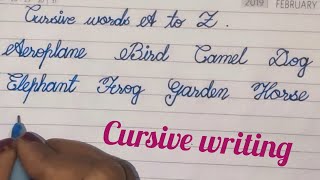 2019 FEBRUARY
Cursive words A to Z.
Aeroplane Bird Camel Dog
Elephant Frog Garden Horse
Cursive writing